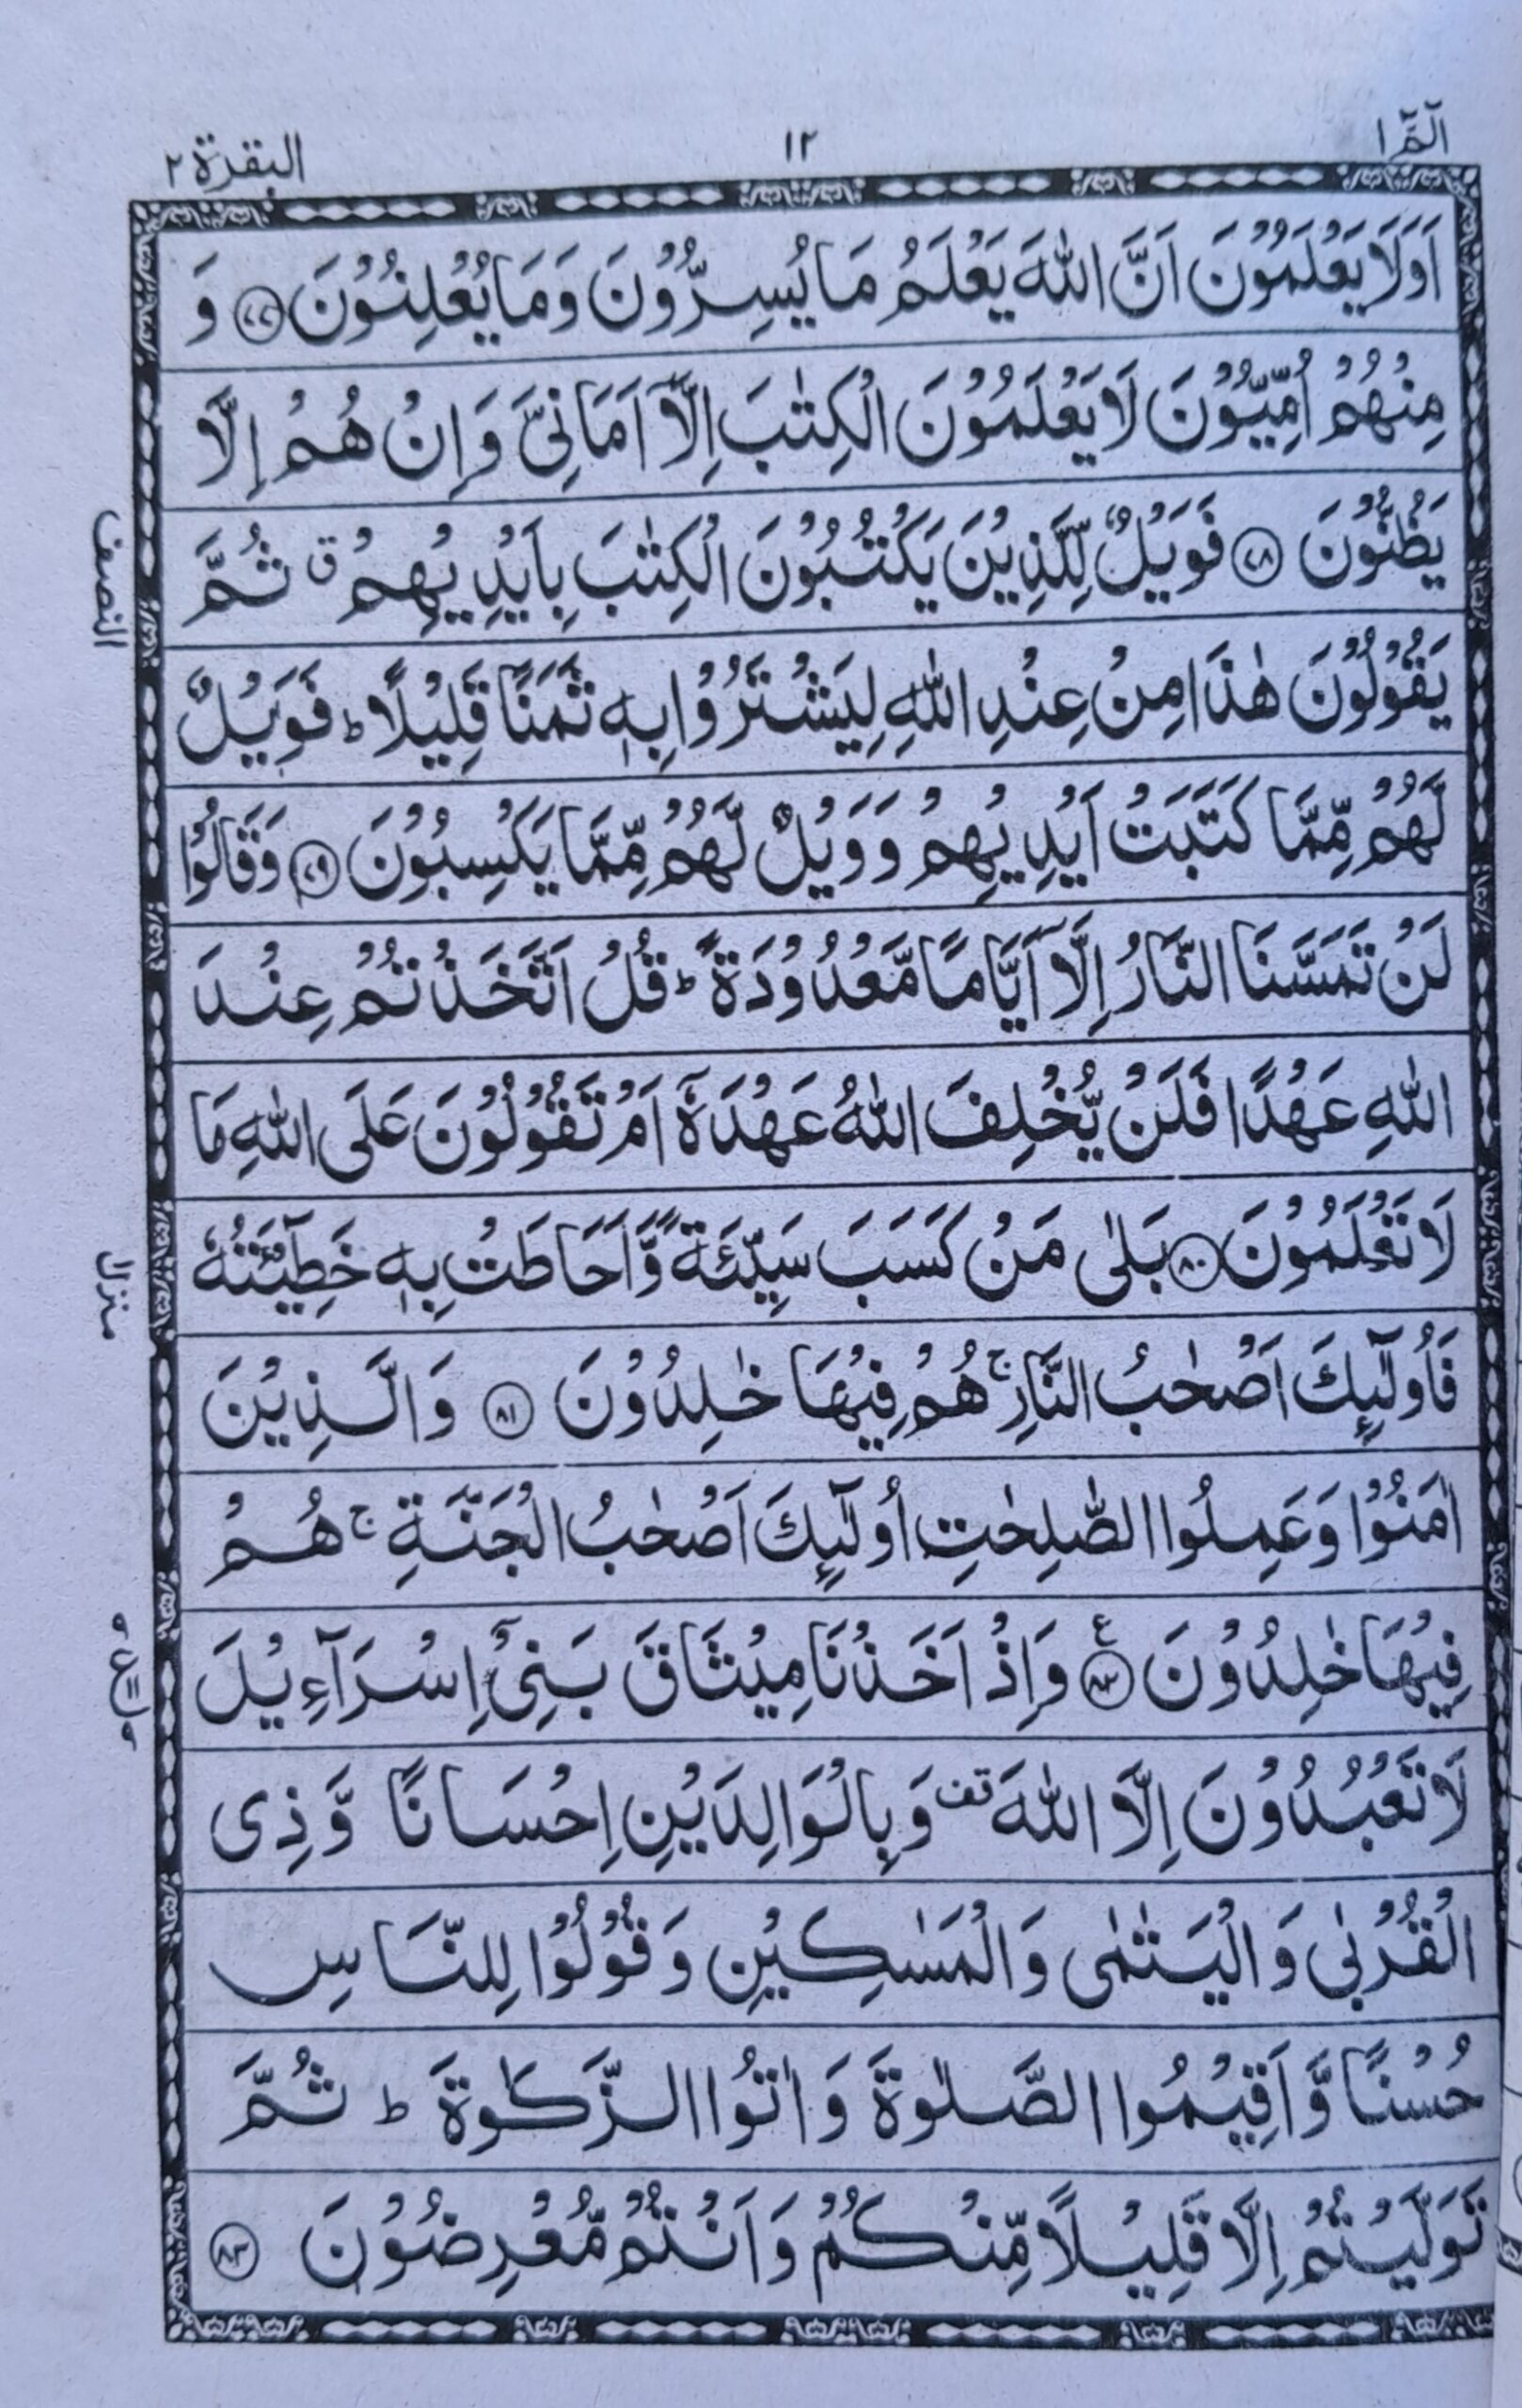 الٓمّٓ ١
١٢
البقرة ٢
اَوَلَا يَعْلَمُوْنَ اَنَّ اللّٰهَ يَعْلَمُ مَا يُسِرُّوْنَ وَمَا يُعْلِنُوْنَ ﴿۷۷﴾ وَ
مِنْهُمْ اُمِّيُّوْنَ لَا يَعْلَمُوْنَ الْكِتٰبَ اِلَّاۤ اَمَانِیَّ وَاِنْ هُمْ اِلَّا
يَظُنُّوْنَ ﴿۷۸﴾ فَوَيْلٌ لِّلَّذِيْنَ يَكْتُبُوْنَ الْكِتٰبَ بِاَيْدِيْهِمْ ۗ ثُمَّ
النصف
يَقُوْلُوْنَ هٰذَا مِنْ عِنْدِ اللّٰهِ لِيَشْتَرُوْا بِهٖ ثَمَنًا قَلِيْلًا ؕ فَوَيْلٌ
لَّهُمْ مِّمَّا كَتَبَتْ اَيْدِيْهِمْ وَوَيْلٌ لَّهُمْ مِّمَّا يَكْسِبُوْنَ ﴿۷۹﴾ وَقَالُوْا
لَنْ تَمَسَّنَا النَّارُ اِلَّاۤ اَيَّامًا مَّعْدُوْدَةً ؕ قُلْ اَتَّخَذْتُمْ عِنْدَ
اللّٰهِ عَهْدًا فَلَنْ يُّخْلِفَ اللّٰهُ عَهْدَهٗۤ اَمْ تَقُوْلُوْنَ عَلَى اللّٰهِ مَا
لَا تَعْلَمُوْنَ ﴿۸۰﴾ بَلٰى مَنْ كَسَبَ سَيِّئَةً وَّاَحَاطَتْ بِهٖ خَطِيْٓئَتُهٗ
منزل
فَاُولٰٓئِكَ اَصْحٰبُ النَّارِ ۚ هُمْ فِيْهَا خٰلِدُوْنَ ﴿۸۱﴾ وَالَّذِيْنَ
اٰمَنُوْا وَعَمِلُوا الصّٰلِحٰتِ اُولٰٓئِكَ اَصْحٰبُ الْجَنَّةِ ۚ هُمْ
فِيْهَا خٰلِدُوْنَ ﴿۸۲﴾ ع وَاِذْ اَخَذْنَا مِيْثَاقَ بَنِیْۤ اِسْرَآءِيْلَ
لَا تَعْبُدُوْنَ اِلَّا اللّٰهَ قف وَبِالْوَالِدَيْنِ اِحْسَانًا وَّذِی
الْقُرْبٰى وَالْيَتٰمٰى وَالْمَسٰكِيْنِ وَقُوْلُوْا لِلنَّاسِ
حُسْنًا وَّاَقِيْمُوا الصَّلٰوةَ وَاٰتُوا الزَّكٰوةَ ؕ ثُمَّ
تَوَلَّيْتُمْ اِلَّا قَلِيْلًا مِّنْكُمْ وَاَنْتُمْ مُّعْرِضُوْنَ ﴿۸۳﴾